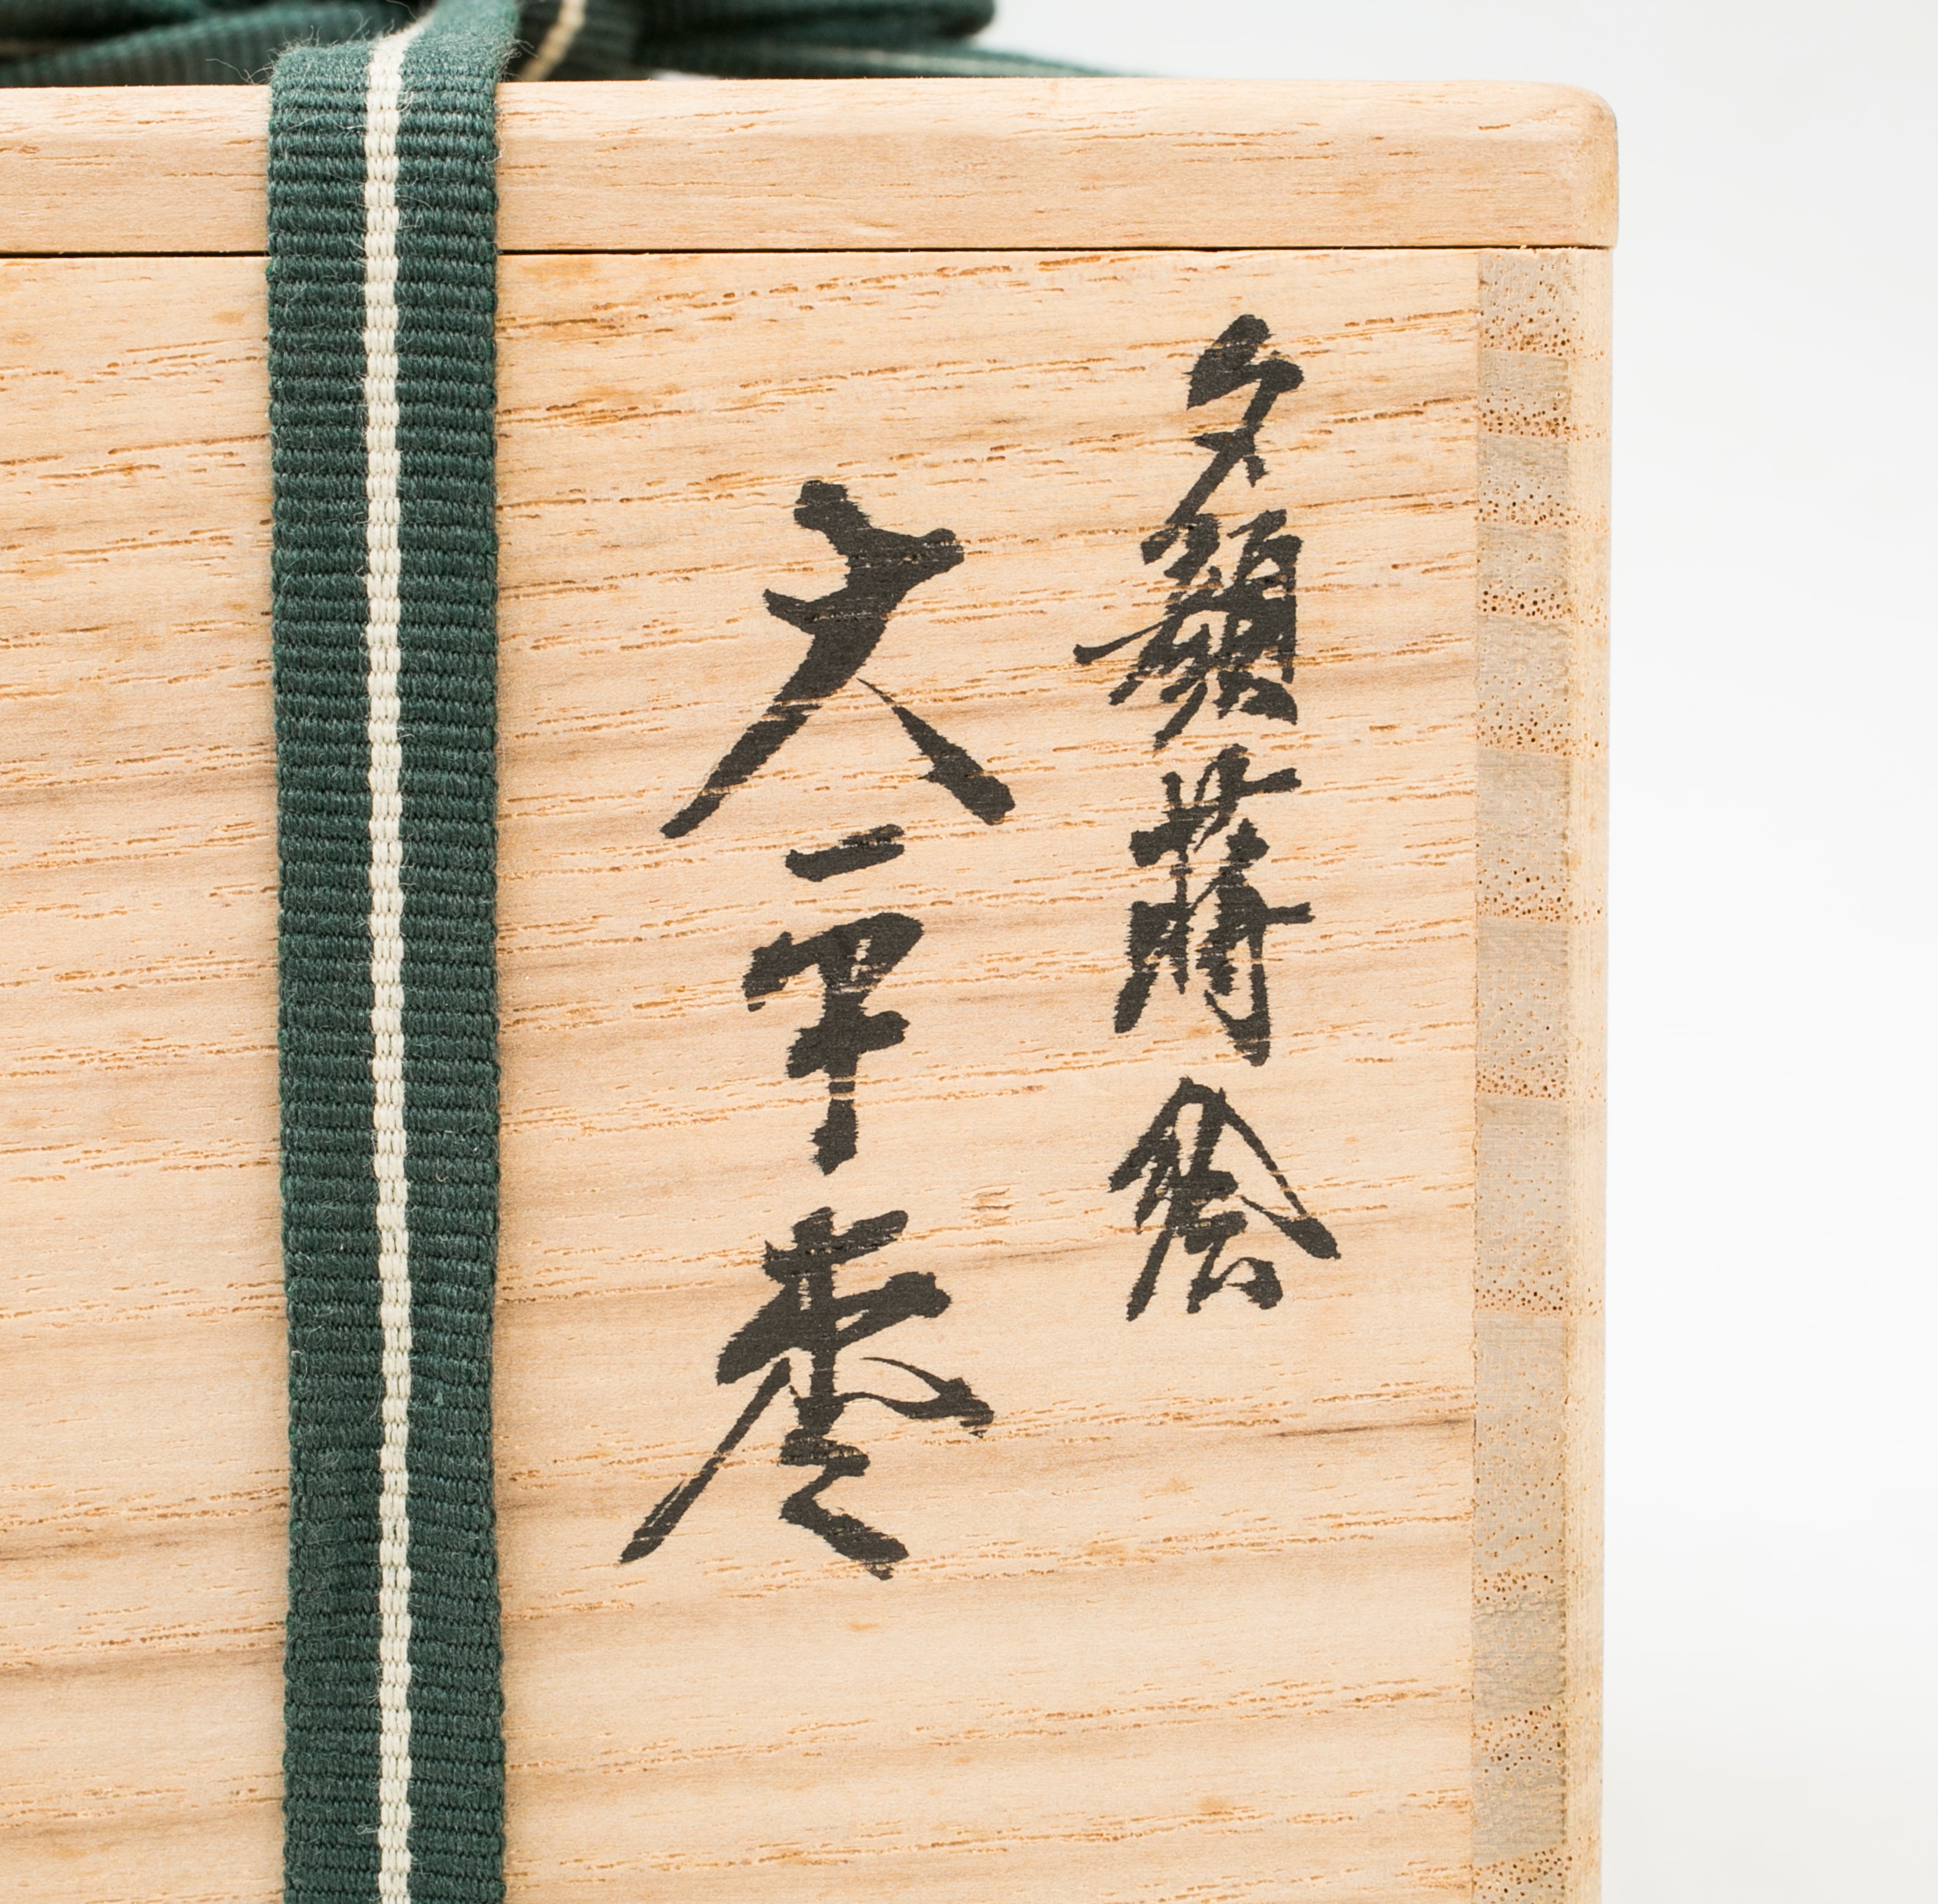 夕顔蒔絵
大平棗